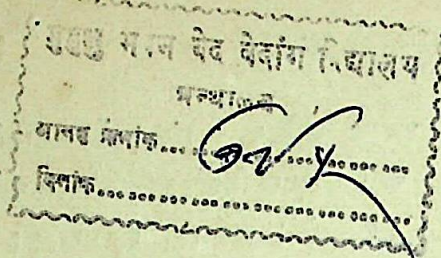 मुमुक्षु भवन वेद वेदांग विद्यालय
ग्रन्थालय
आगत क्रमांक............
दिनांक............